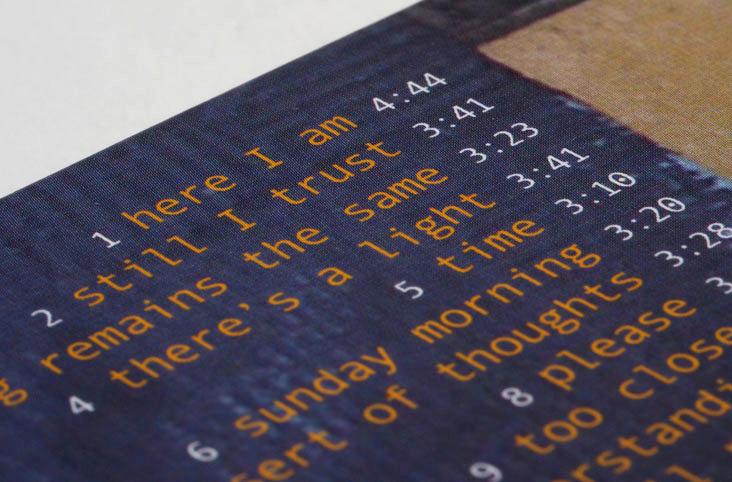 1 here I am 4:44
2 still I trust 3:41
remains the same 3:23
4 there's a light 3:41
5 time 3:10
6 sunday morning 3:20
of thoughts 3:28
8 please
9 too close